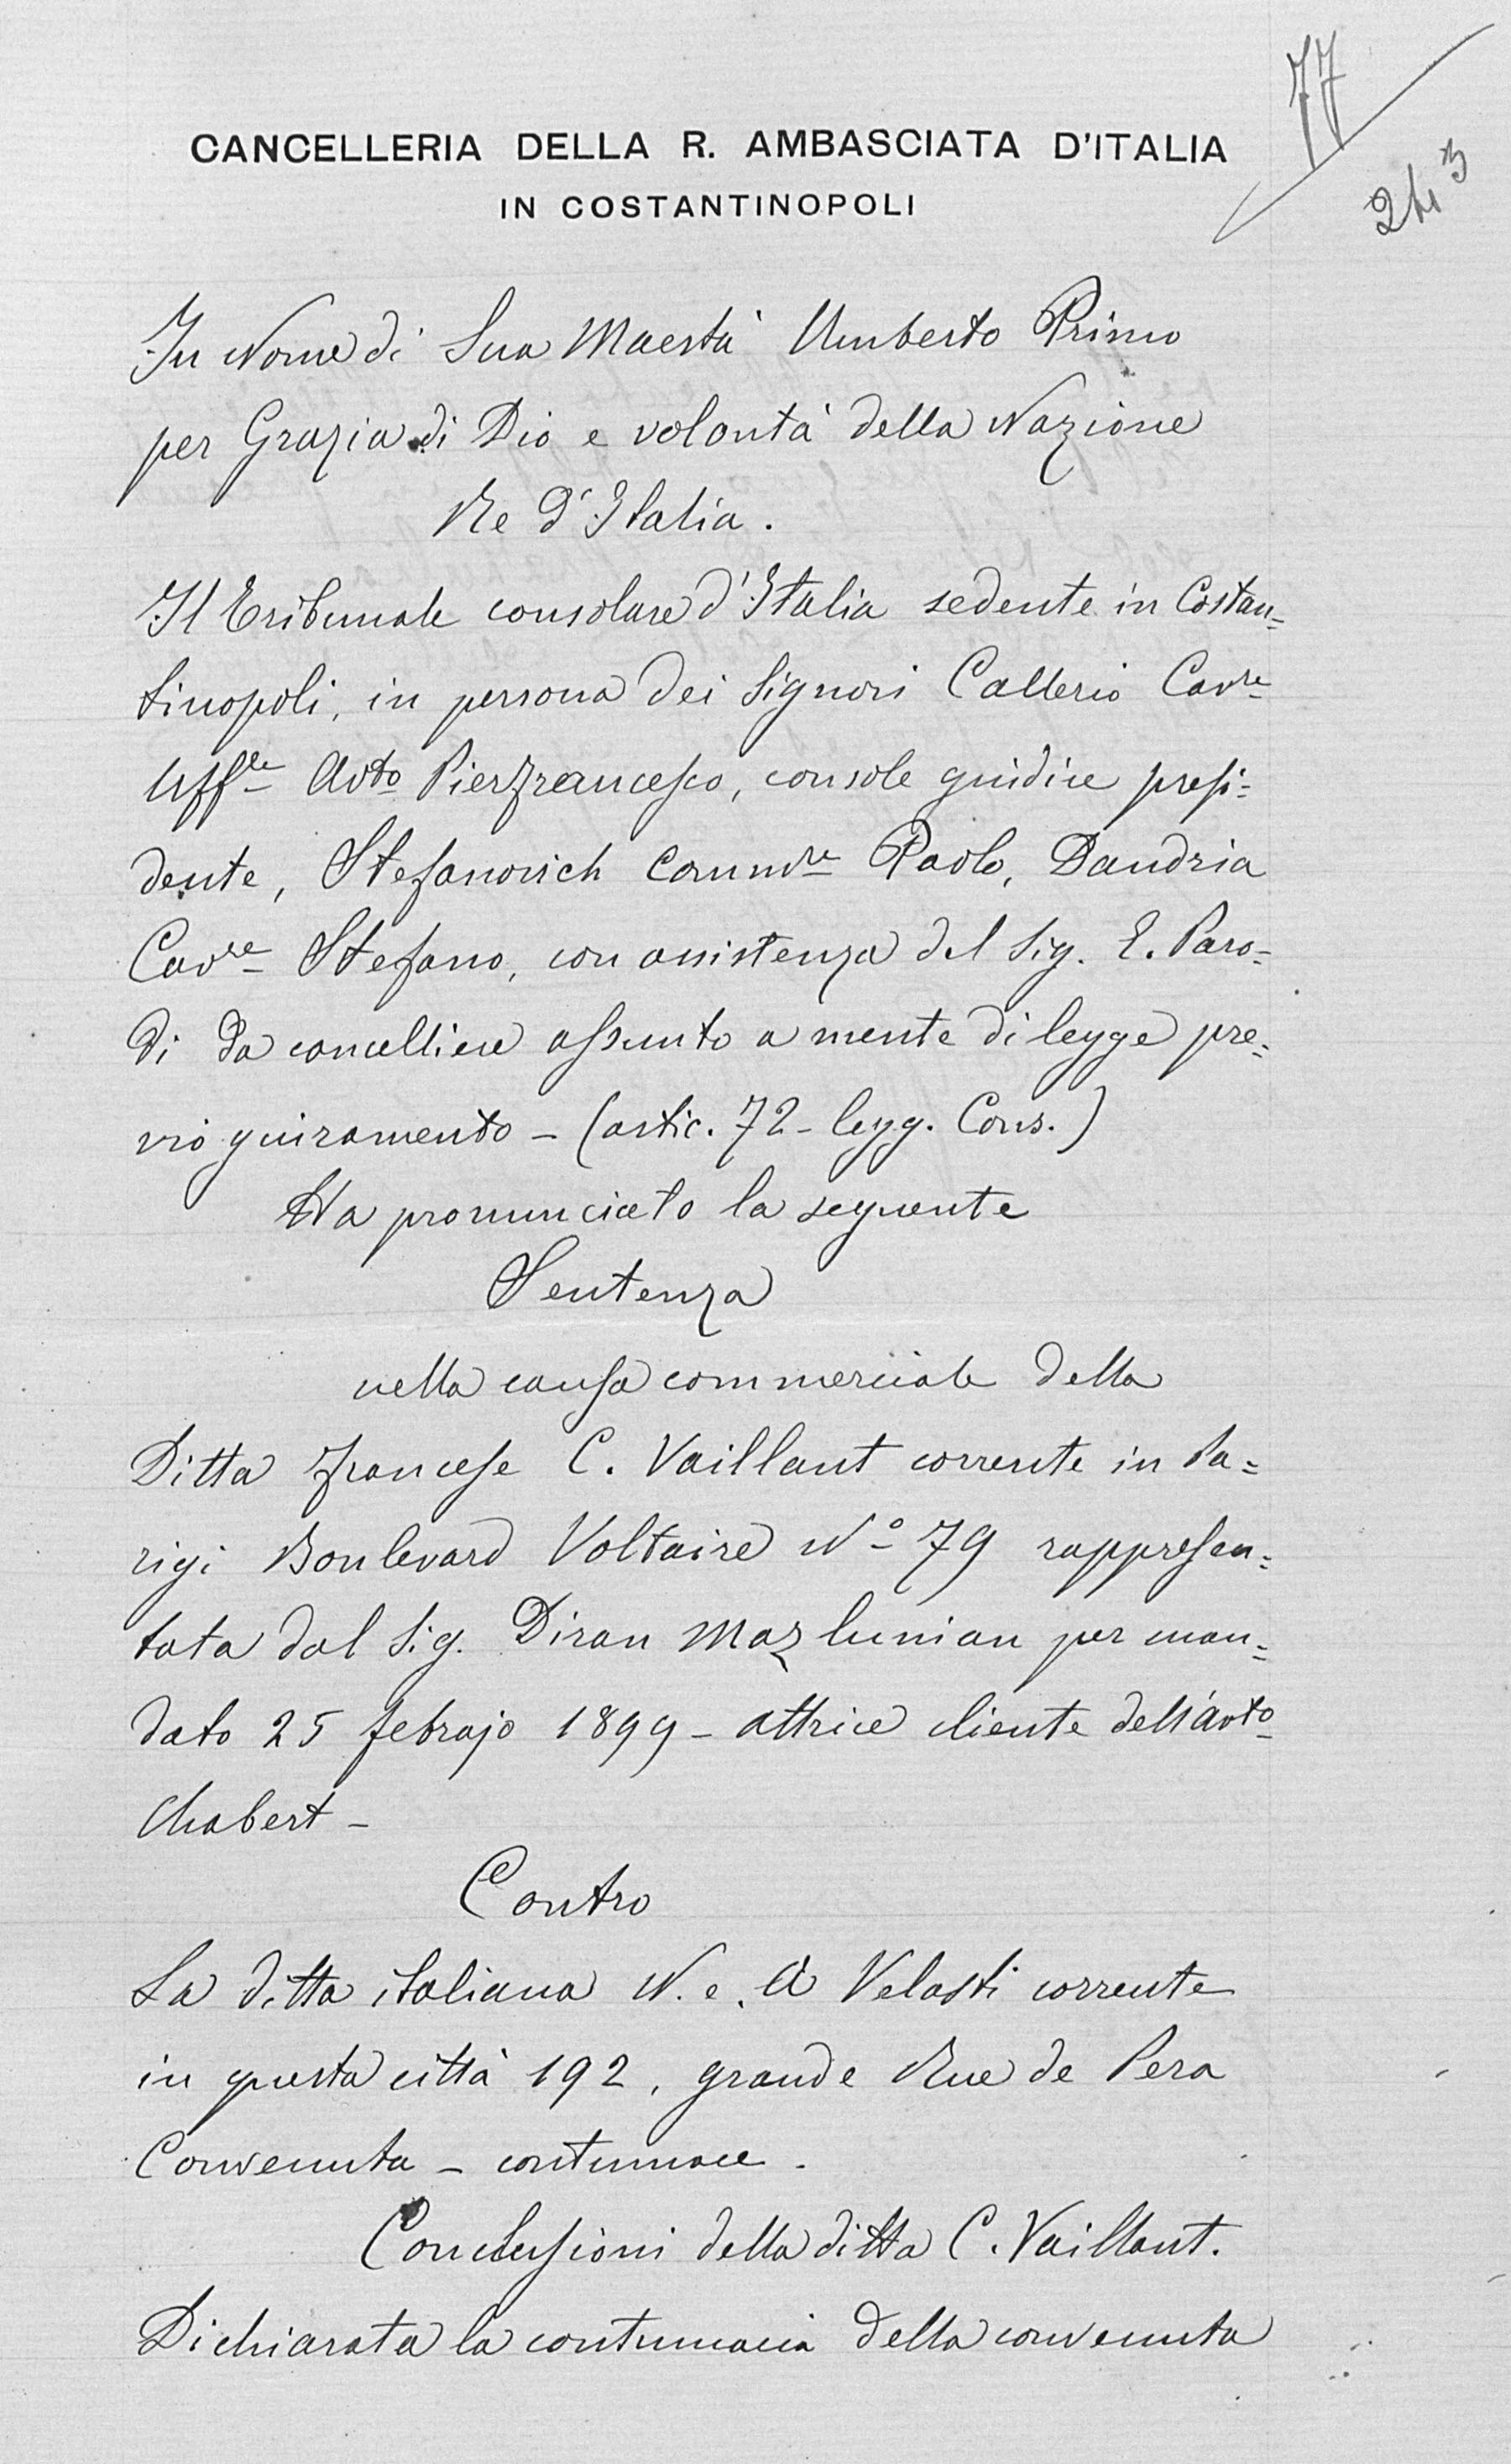 77
243
CANCELLERIA DELLA R. AMBASCIATA D'ITALIA
IN COSTANTINOPOLI
In Nome di Sua Maestà Umberto Primo
per Grazia di Dio e volontà della Nazione
Re D'Italia.
Il Tribunale consolare d'Italia sedente in Costan=
tinopoli, in persona dei Signori Callerio Cavre
Uffle Avto Pierfrancesco, console giudice presi=
dente, Stefanovich Commre Paolo, Dandria
Cavre Stefano, con assistenza del Sig. E. Paro=
di da cancelliere assunto a mente di legge pre=
vio giuramento - (artic. 72 - legg. Cons.)
Ha pronunciato la seguente
Sentenza
nella causa commerciale della
Ditta francese C. Vaillant corrente in Pa=
rigi Boulevard Voltaire No 79 rappresen=
tata dal Sig. Diran Mazlumian per man=
dato 25 febrajo 1899 - attrice cliente dell'avto
Chabert -
Contro
La ditta italiana N. e. A Velasti corrente
in questa città 192, grande Rue de Pera
Convenuta - contumace.
Conclusioni della ditta C. Vaillant.
Dichiarata la contumacia della convenuta